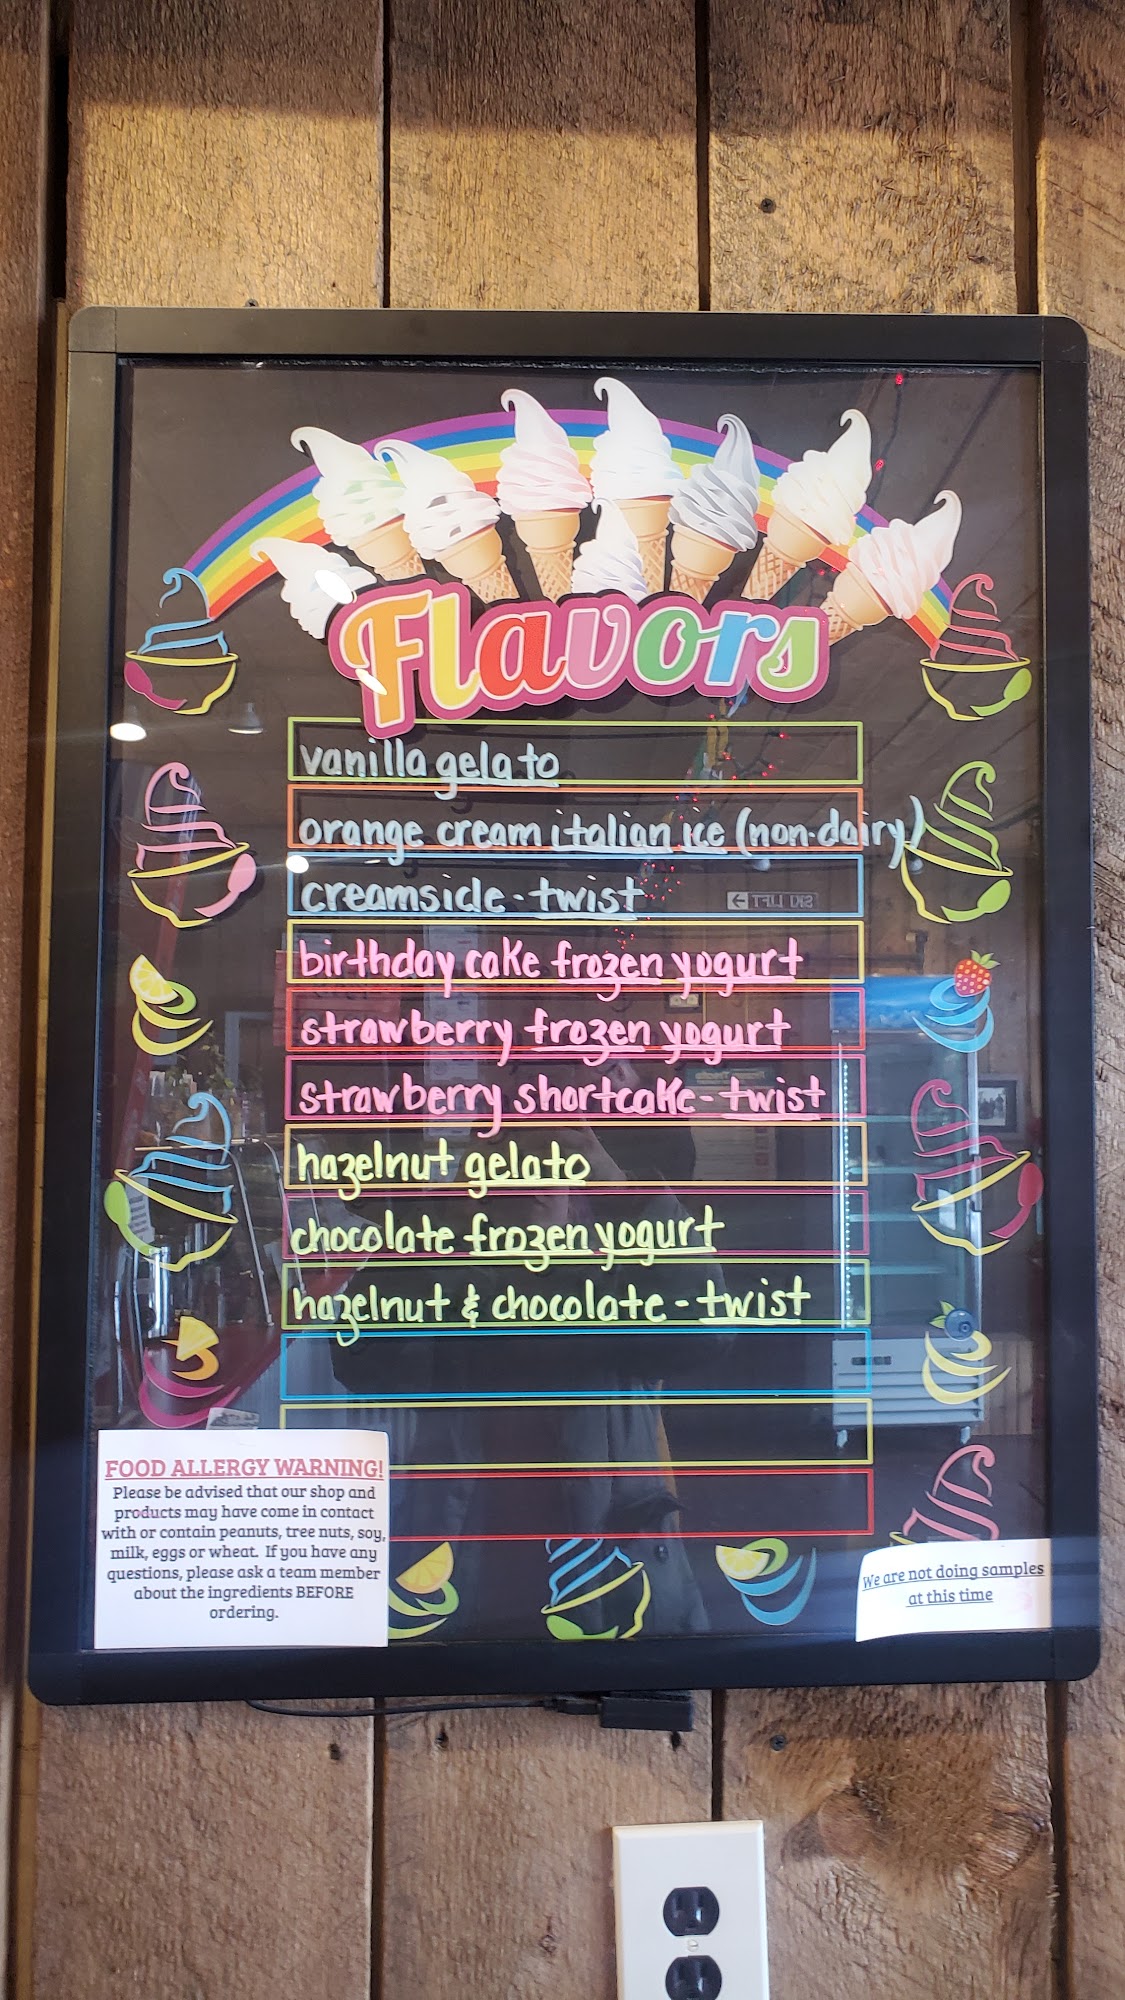 Flavors
vanilla gelato
orange cream italian ice (non-dairy)
creamsicle - twist
SKI LIFT
birthday cake frozen yogurt
strawberry frozen yogurt
strawberry shortcake - twist
hazelnut gelato
chocolate frozen yogurt
hazelnut & chocolate - twist
FOOD ALLERGY WARNING!
Please be advised that our shop and
products may have come in contact
with or contain peanuts, tree nuts, soy,
milk, eggs or wheat. If you have any
questions, please ask a team member
about the ingredients BEFORE
ordering.
We are not doing samples
at this time